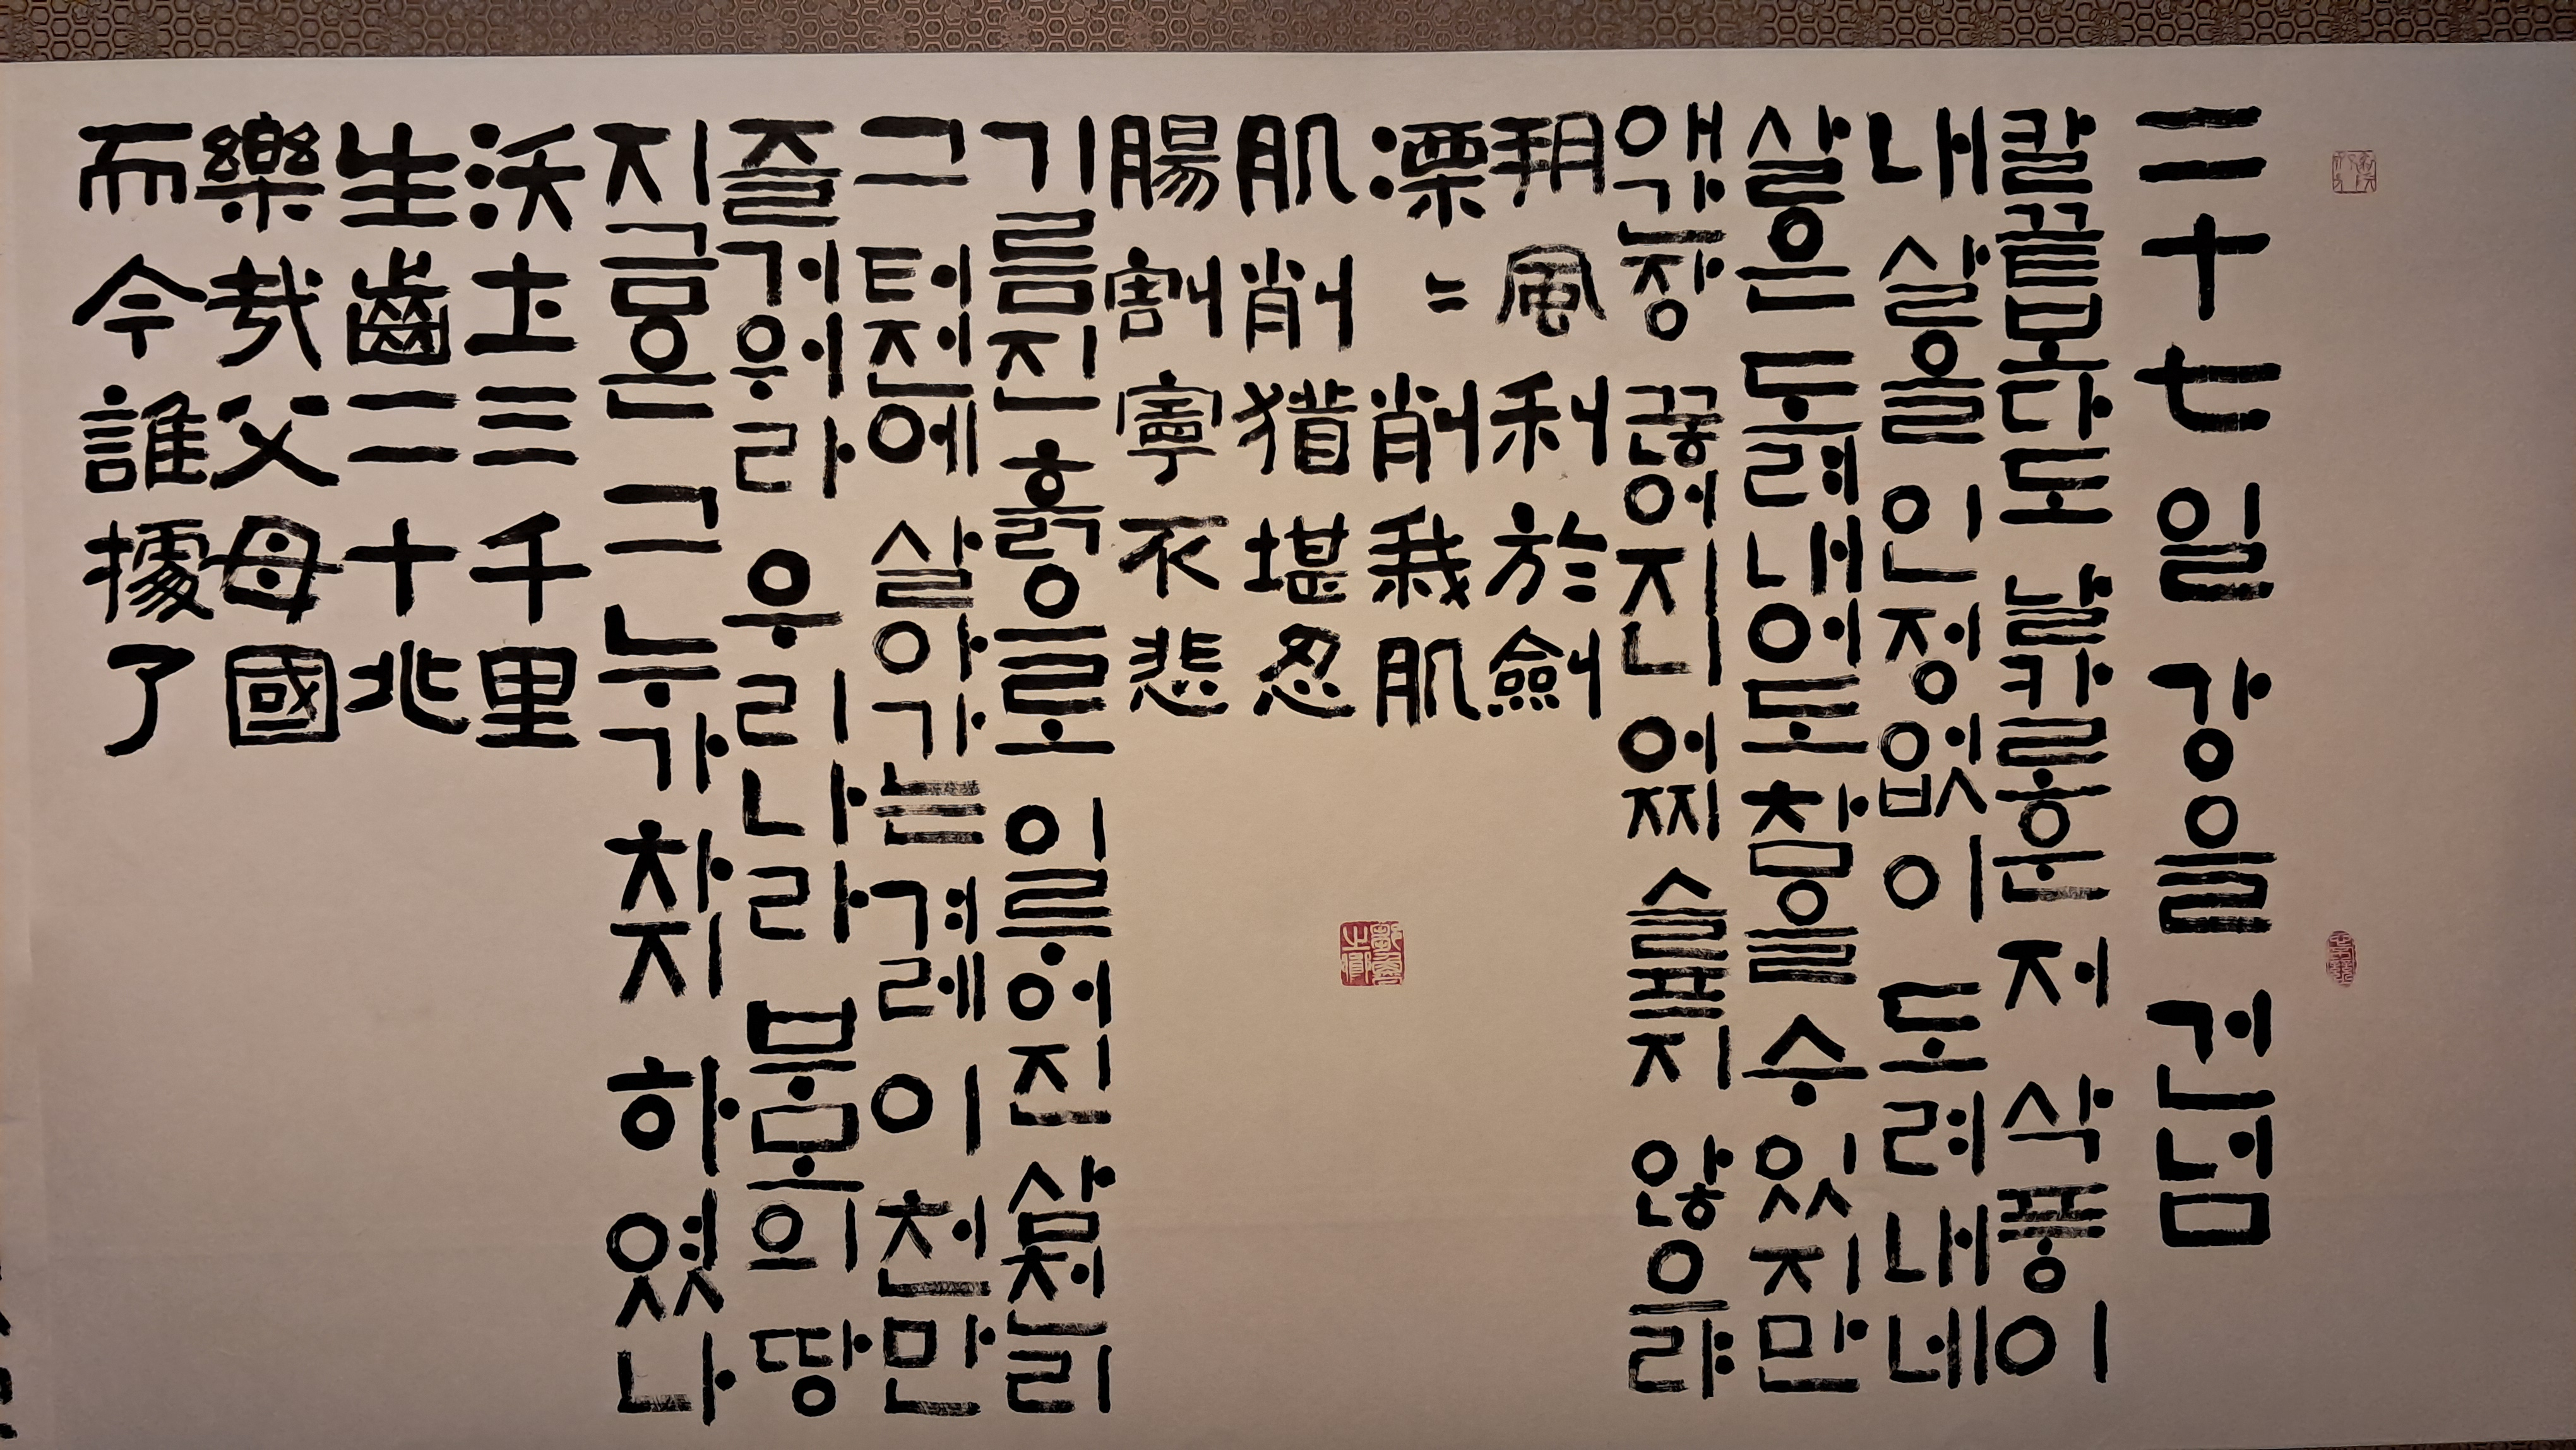 二十七일 강을 건넘
칼끝보다도 날카로운 저 삭풍이
내 살을 인정없이 도려내네
살은 도려내어도 참을 수 있지만
애간장 끊어지니 어찌 슬프지 않으랴
朔風利於劍
凓〻削我肌
肌削猶堪忍
腸割寧不悲
기름진 흙으로 이루어진 삼천리
그 터전에 살아가는 겨레 이천만
즐거워라 우리나라 부모의 땅
지금은 그 누가 차지 하였나
沃土三千里
生齒二十兆
樂哉父母國
而今誰據了